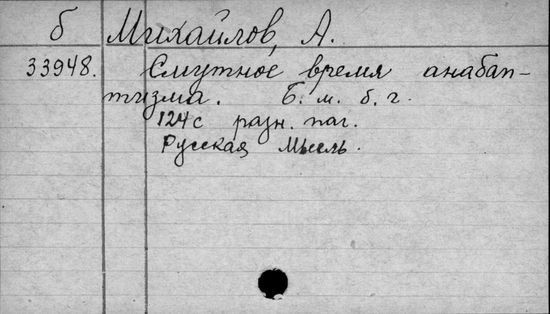 б Михайлов, А.
33948. Смутное время анабап-
тизма. Б. м. б. г.
124 с разн. паг.
Русская Мысль.